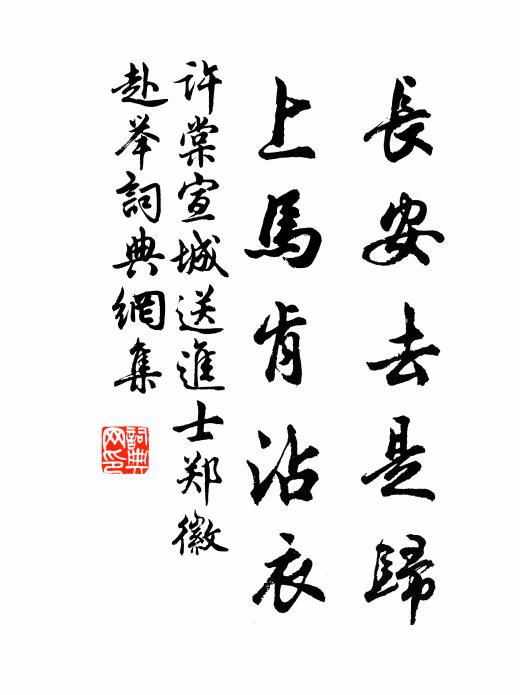 長安去是歸
上馬肯沾衣
许棠宣城送進士郑徽
赴举詞典網集
詞典
网印